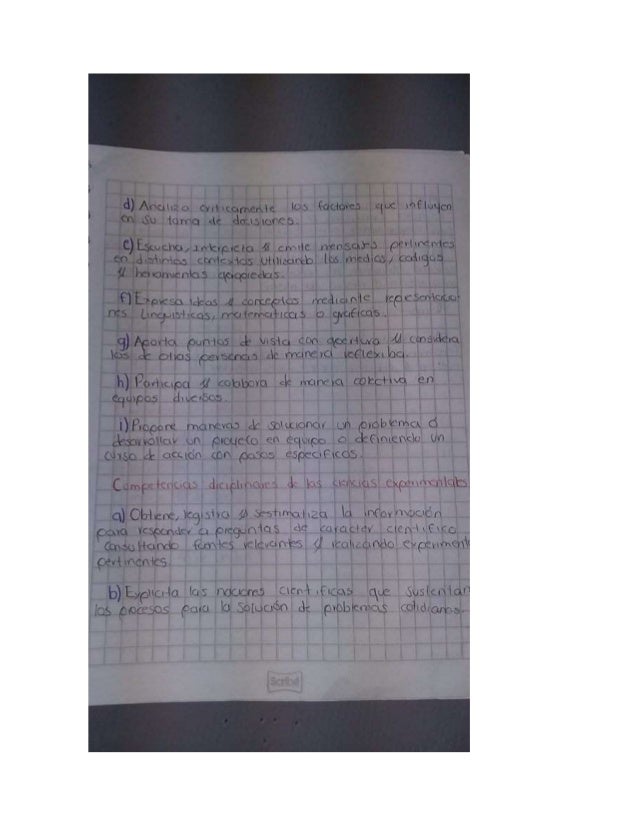 d) Analiza criticamente los factores que influyen
en su toma de decisiones.
e) Escucha, interpreta y emite mensajes pertinentes
en distintos contextos utilizando los medios, codigos
y herramientas apropiadas.
f) Expresa ideas y conceptos mediante representacio
nes Linguisticas, matematicas o graficas.
g) Aporta puntos de vista con apertura y considera
los de otras personas de manera reflexiba.
h) Participa y colabora de manera colectiva en
equipos diversos.
i) Propone maneras de solucionar un problema o
desarrollar un proyecto en equipo o definiendo un
curso de acción con pasos especificos.
Competencias diciplinares de las ciencias experimentales
a) Obtiene, registra y sestimatiza la información
para responder a preguntas de caracter cientifico
consultando fuentes relevantes y realizando experiment
pertinentes
b) Explicita las nociones cientificas que sustentan
los procesos para la solución de problemas cotidianos.
Scribe